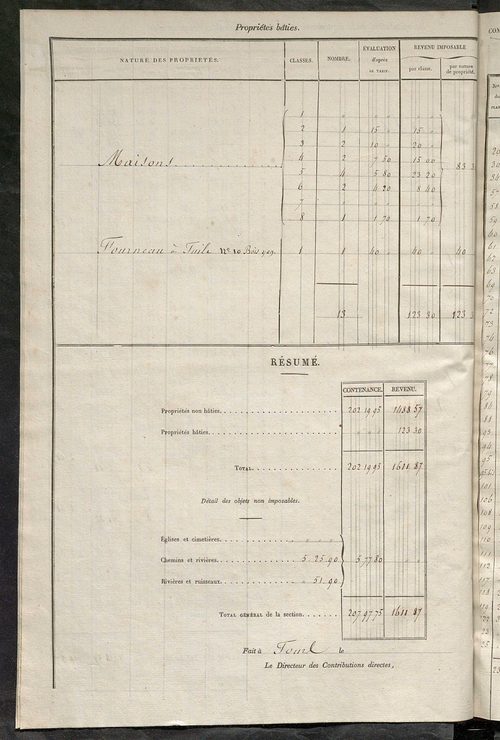 Propriétés bâties.
NATURE DES PROPRIÉTÉS. CLASSES. NOMBRE. ÉVALUATION d'après LE TARIF. REVENU IMPOSABLE
par classe. par nature de propriété.
1 " " "
2 1 15 " 15 "
3 2 10 " 20 "
Maisons 4 2 7 50 15 00 83 3
5 4 5 80 23 20
6 2 4 20 8 40
7 " " "
8 1 1 70 1 70
Fourneau à Tuile Nº 10 Bois 1 1 40 " 40 " 40
13 123 30 123 3
RÉSUMÉ.
CONTENANCE. REVENU.
Propriétés non bâties. 202 19 95 1488 57
Propriétés bâties. " " " 123 30
TOTAL. 202 19 95 1611 87
Détail des objets non imposables.
Églises et cimetières. " " "
Chemins et rivières. 5 25 90 5 77 80 " "
Rivières et ruisseaux. " 51 90
TOTAL GÉNÉRAL de la section. 207 97 75 1611 87
Fait à le
Le Directeur des Contributions directes,